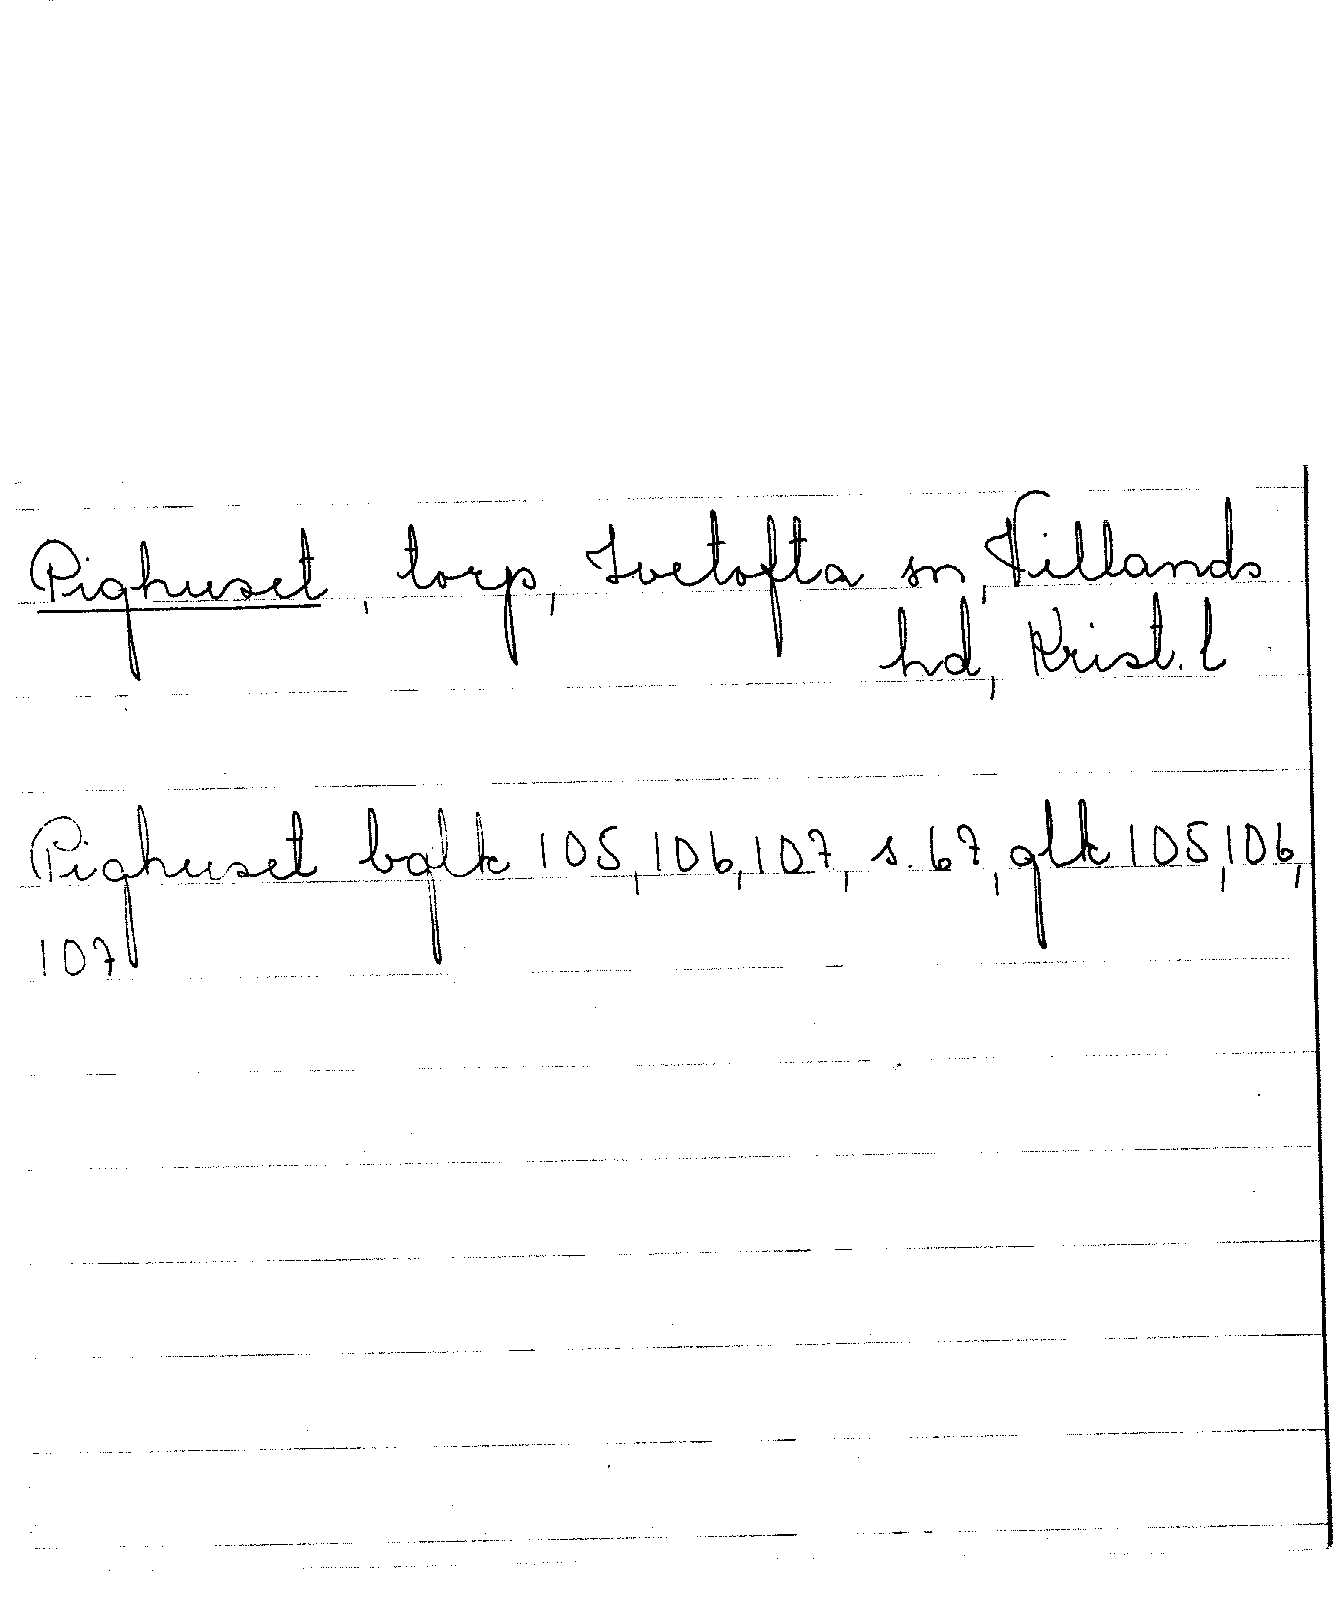 Pighuset, torp, Ivetofta sn, Villands
hd, Krist. l
Pighuset bqlk 105, 106, 107, s. 67, qlk 105, 106,
107